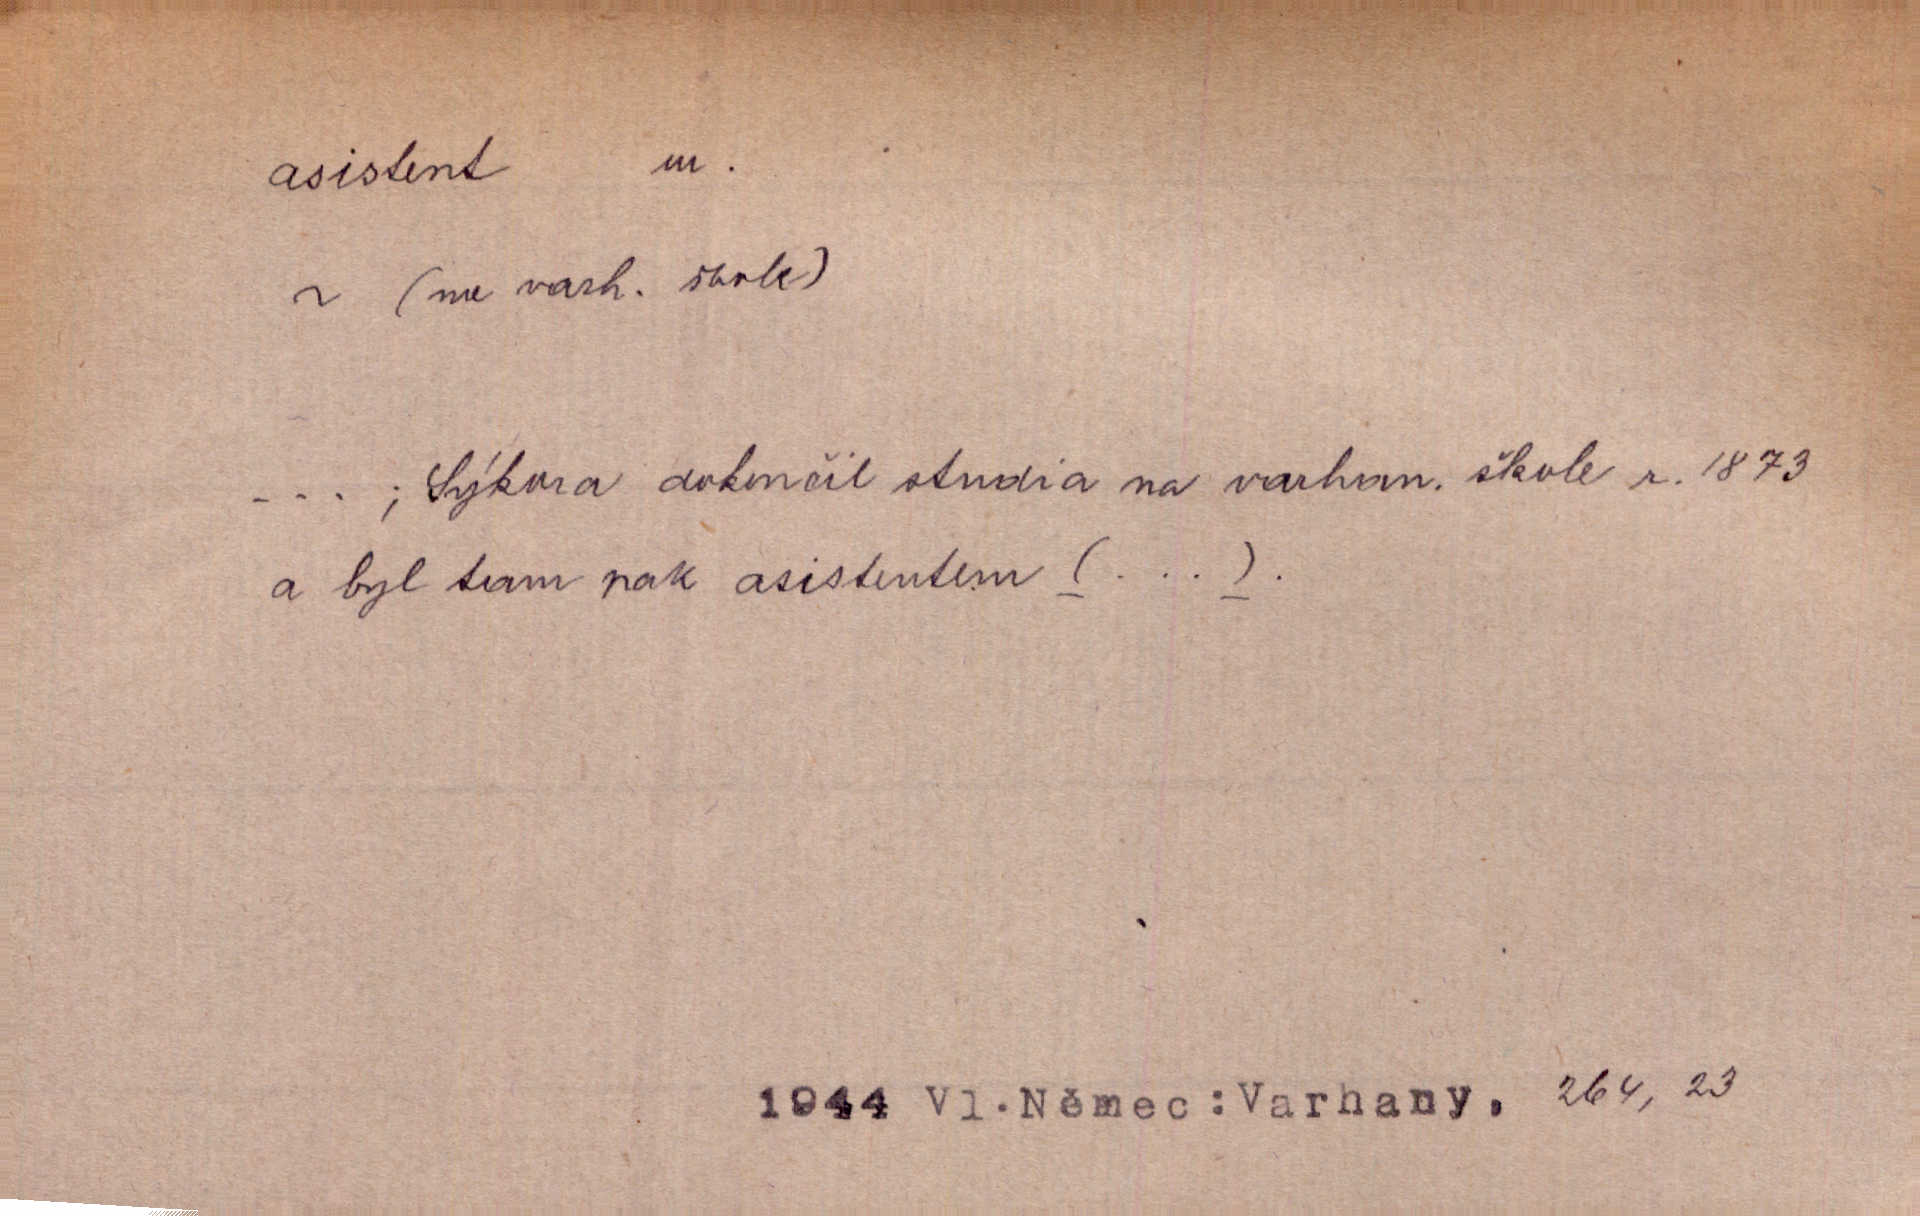 asistent m.
~ (na varh. škole)
- - - ; Sýkora dokončil studia na varhan. škole r. 1873
a byl tam pak asistentem (. . . ).
1944 Vl. Němec: Varhany, 264, 23